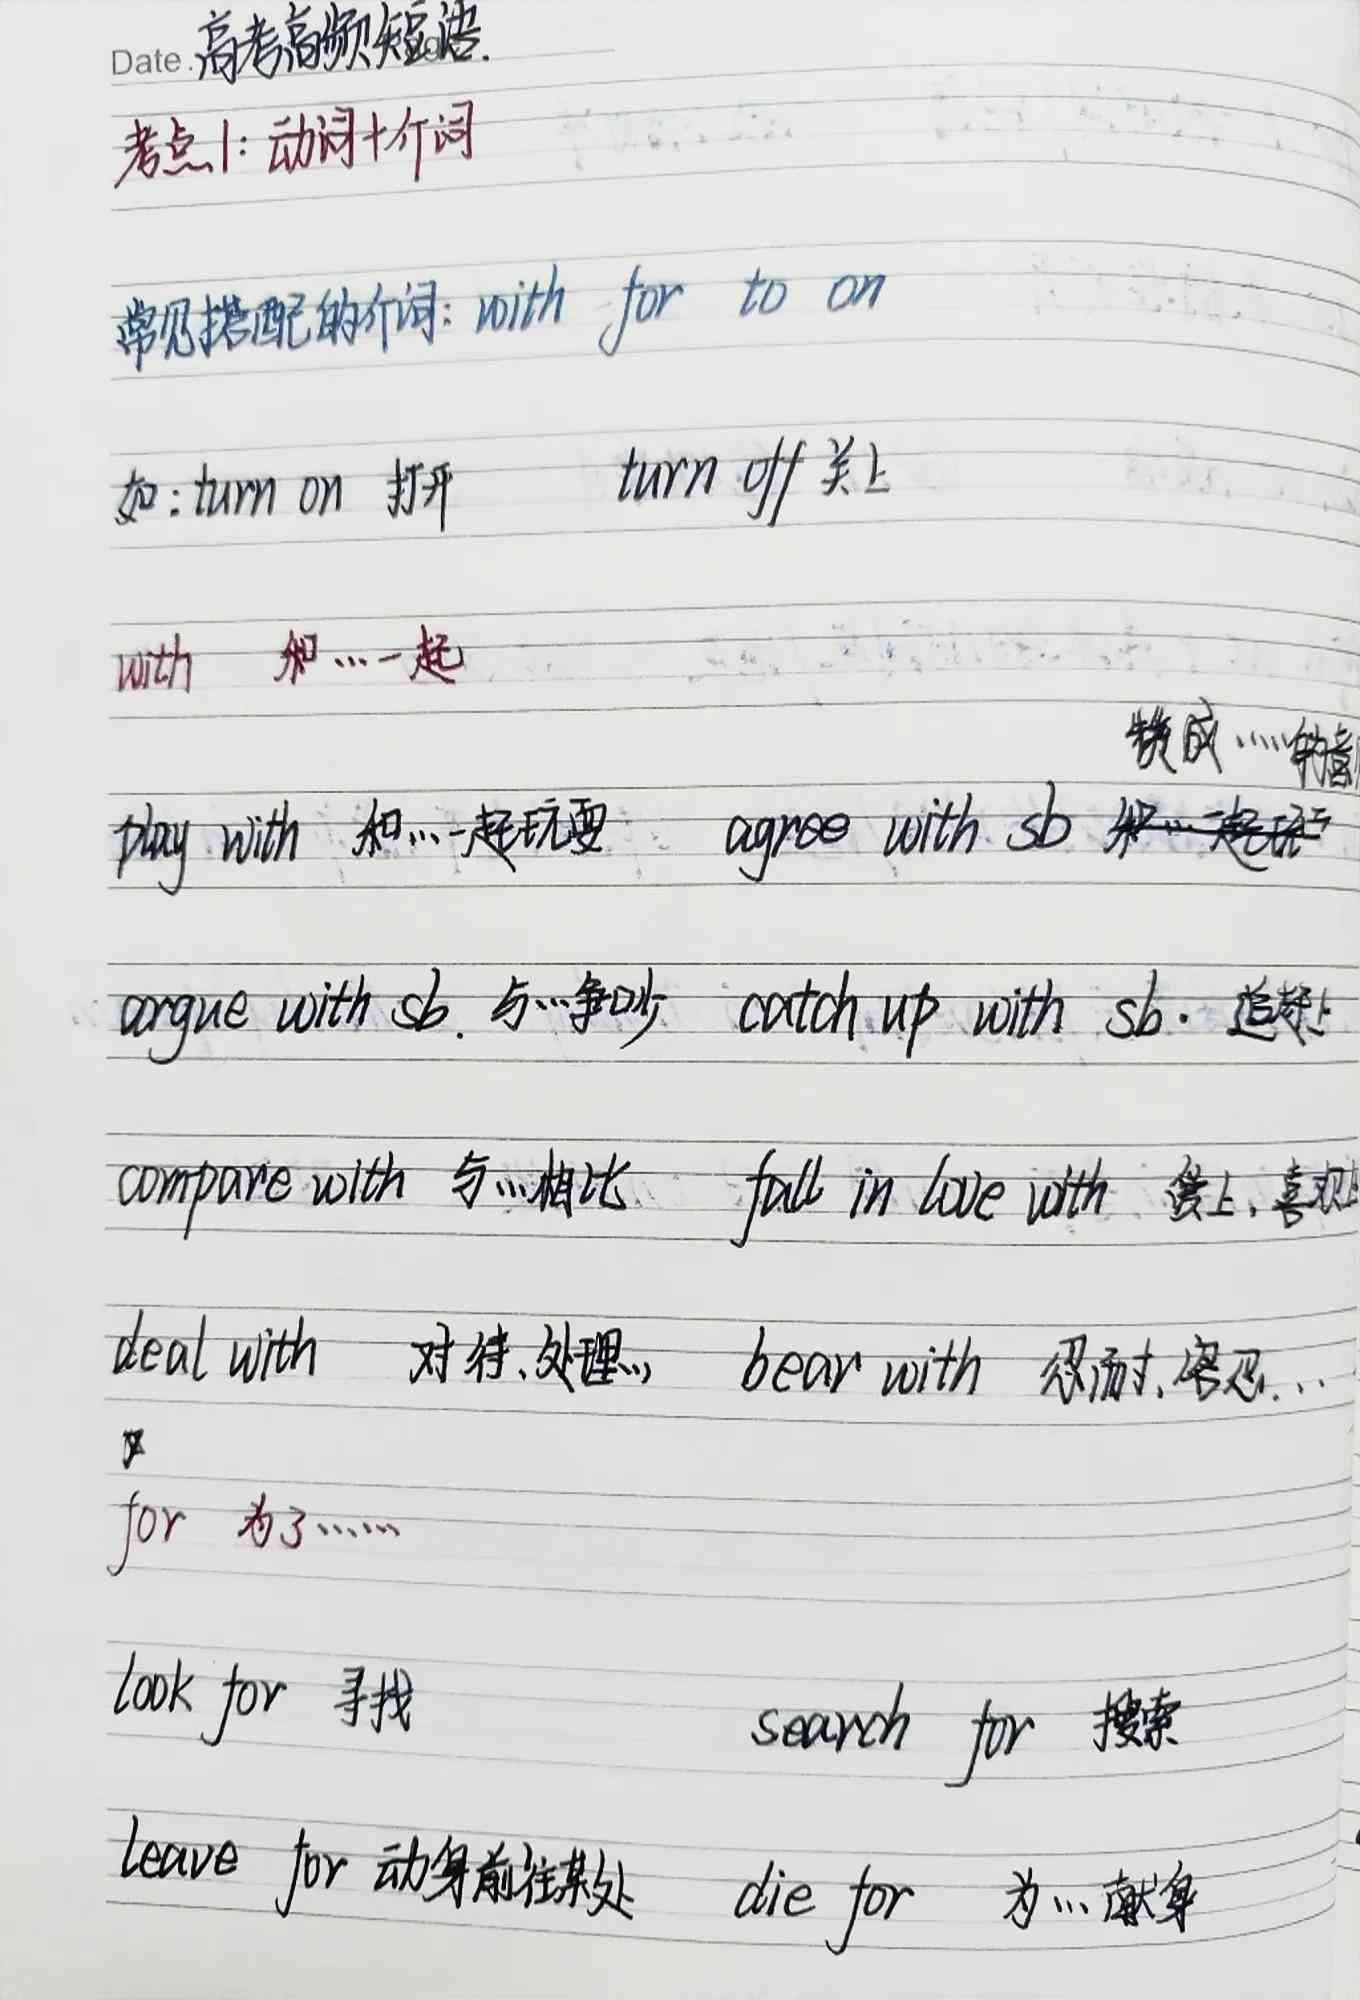 Date. 高考高频短语.
考点1: 动词+介词
常见搭配的介词: with for to on
如: turn on 打开 turn off 关上
with 和…一起
赞成……的意
play with 和…一起玩耍 agree with sb 和…一起玩
argue with sb. 与…争吵 catch up with sb. 追赶上
compare with 与…相比 fall in love with 爱上、喜欢上
deal with 对待、处理… bear with 忍耐、容忍…
for 为了……
look for 寻找 search for 搜索
leave for 动身前往某处 die for 为…献身